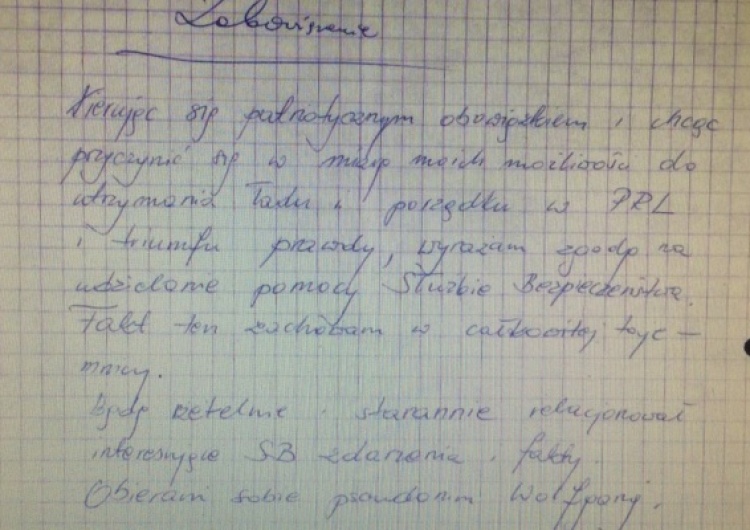 Zobowiązanie
Kierując się patriotycznym obowiązkiem i chcąc
przyczynić się w miarę moich możliwości do
utrzymania ładu i porządku w PRL
i triumfu prawdy, wyrażam zgodę na
udzielanie pomocy Służbie Bezpieczeństwa.
Fakt ten zachowam w całkowitej tajе-
mnicy.
Będę rzetelnie i starannie relacjonował
interesujące SB zdarzenia i fakty.
Obieram sobie pseudonim Wolfgang.